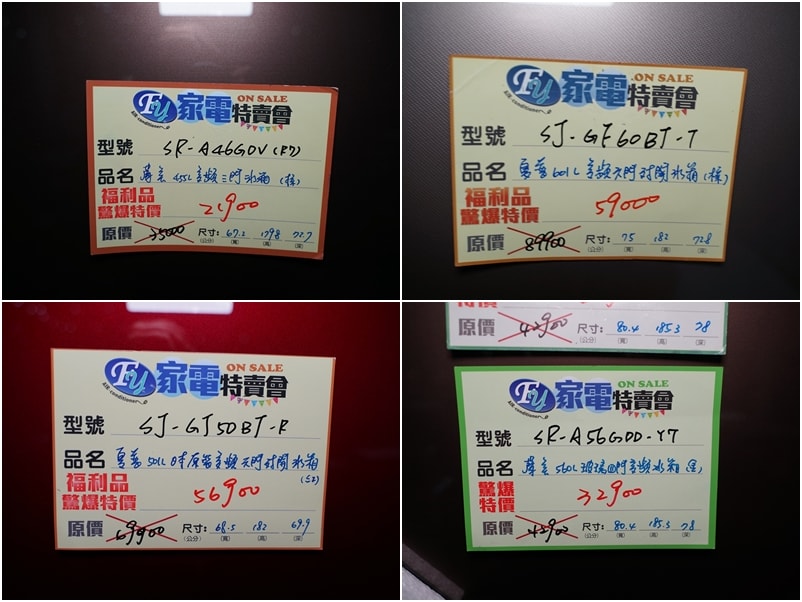 FU 家電 ON SALE 特賣會
air-conditioner
型號 SR-A46GDV(R7)
品名 聲寶 455L 變頻三門冰箱
福利品
驚爆特價 21900
原價 35000 尺寸: 67.2 179.8 72.7
(公分) (寬) (高) (深)
FU 家電 ON SALE 特賣會
air-conditioner
型號 SJ-GF60BT-T
品名 夏普 601L 變頻六門對開冰箱
福利品
驚爆特價 59000
原價 89900 尺寸: 75 182 72.8
(公分) (寬) (高) (深)
FU 家電 ON SALE 特賣會
air-conditioner
型號 SJ-GT50BT-R
品名 夏普 501L 日本原裝變頻六門對開冰箱
(紅)
福利品
驚爆特價 56900
原價 69900 尺寸: 68.5 182 69.9
(公分) (寬) (高) (深)
特價
原價 42900 尺寸: 80.4 185.3 78
(公分) (寬) (高) (深)
FU 家電 ON SALE 特賣會
air-conditioner
型號 SR-A56GDD-Y7
品名 聲寶 560L 玻璃四門變頻冰箱
驚爆
特價 32900
原價 42900 尺寸: 80.4 185.3 78
(公分) (寬) (高) (深)